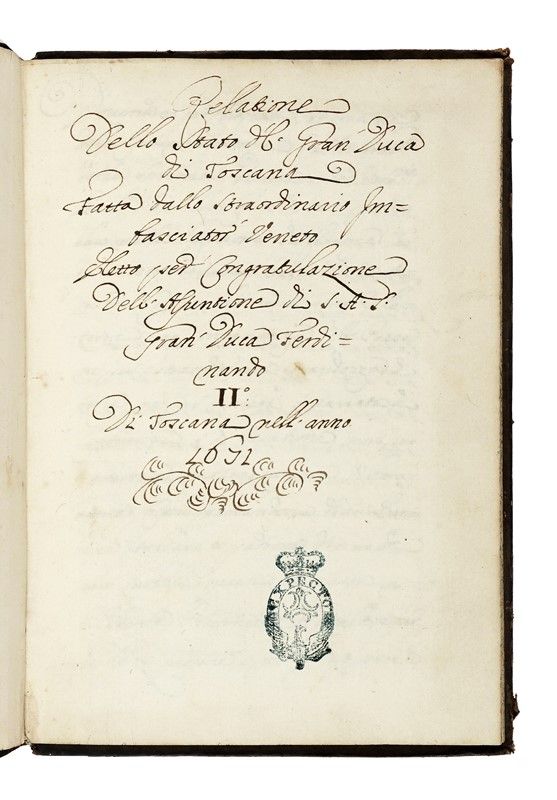 Relatione
Dello Stato del Gran Duca
di Toscana
Fatta dallo Straordinario Im=
basciator Veneto
Eletto per Congratulazione
Dell'Asuntione di S. A. S.
Gran Duca Ferdi=
nando
IIº:
Di Toscana nell'anno
1631
EXPECTO